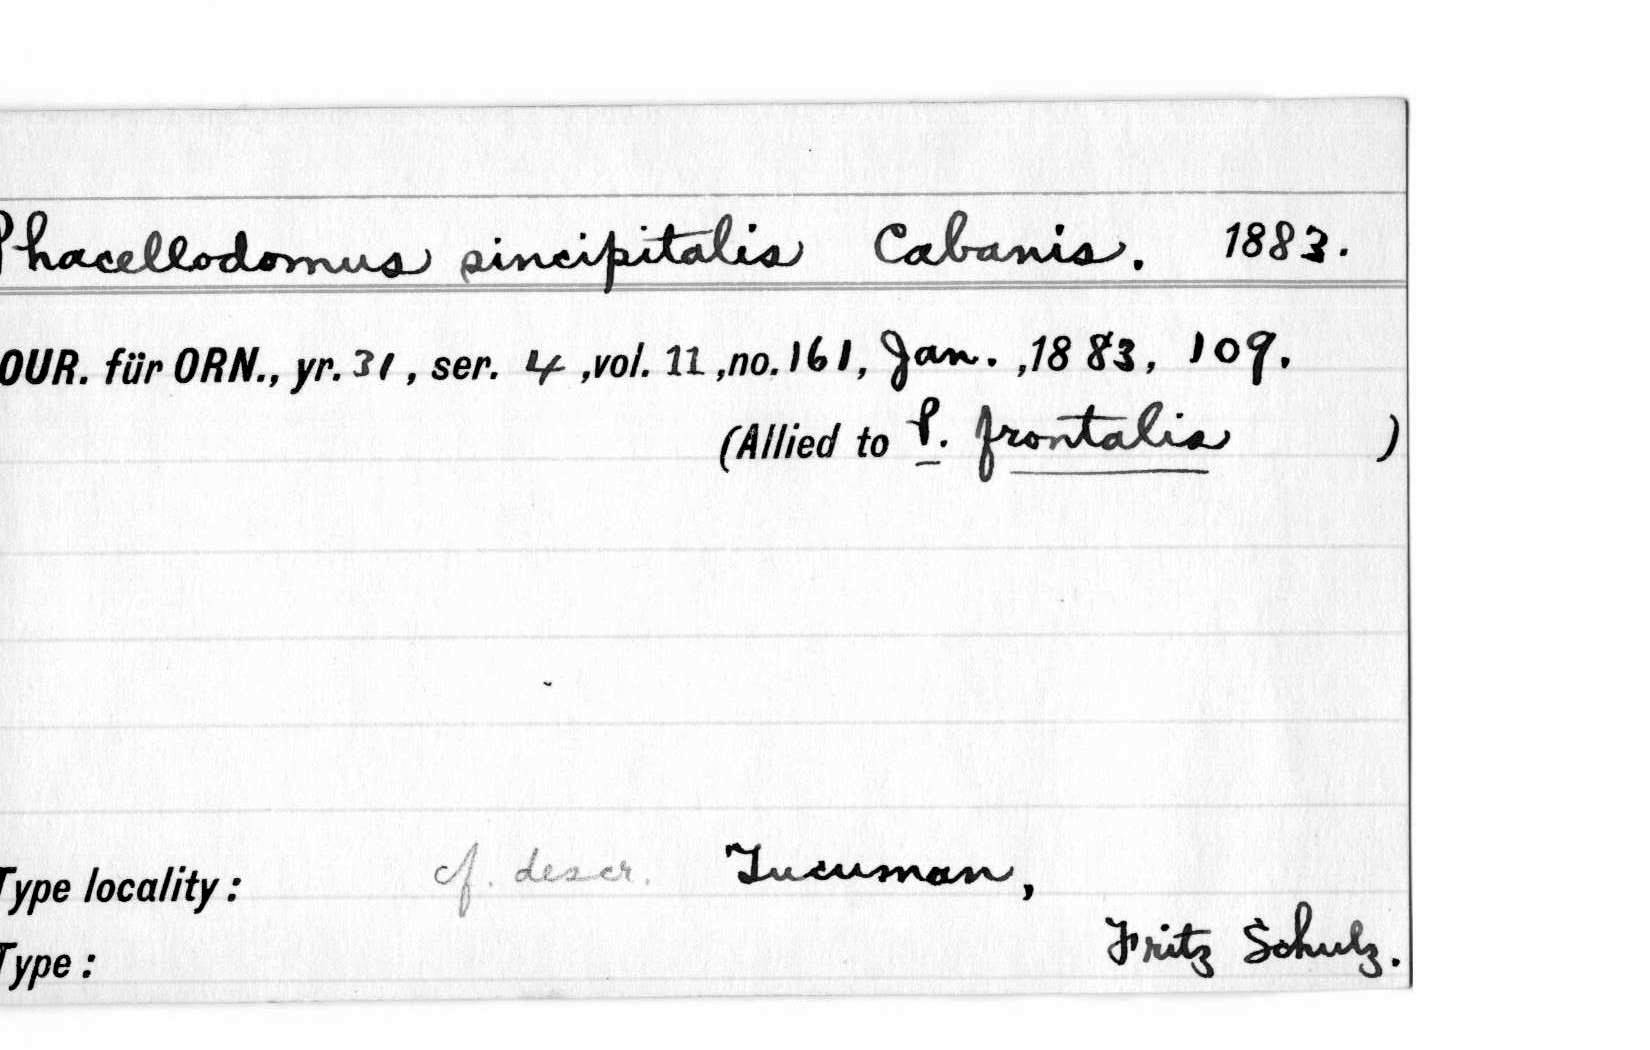 Phacellodomus sincipitalis Cabanis. 1883.
OUR. für ORN., yr. 31, ser. 4, vol. 11, no. 161, Jan., 1883, 109.
(Allied to P. frontalis )
Type locality: cf. descr. Tucuman,
Fritz Schulz.
Type: